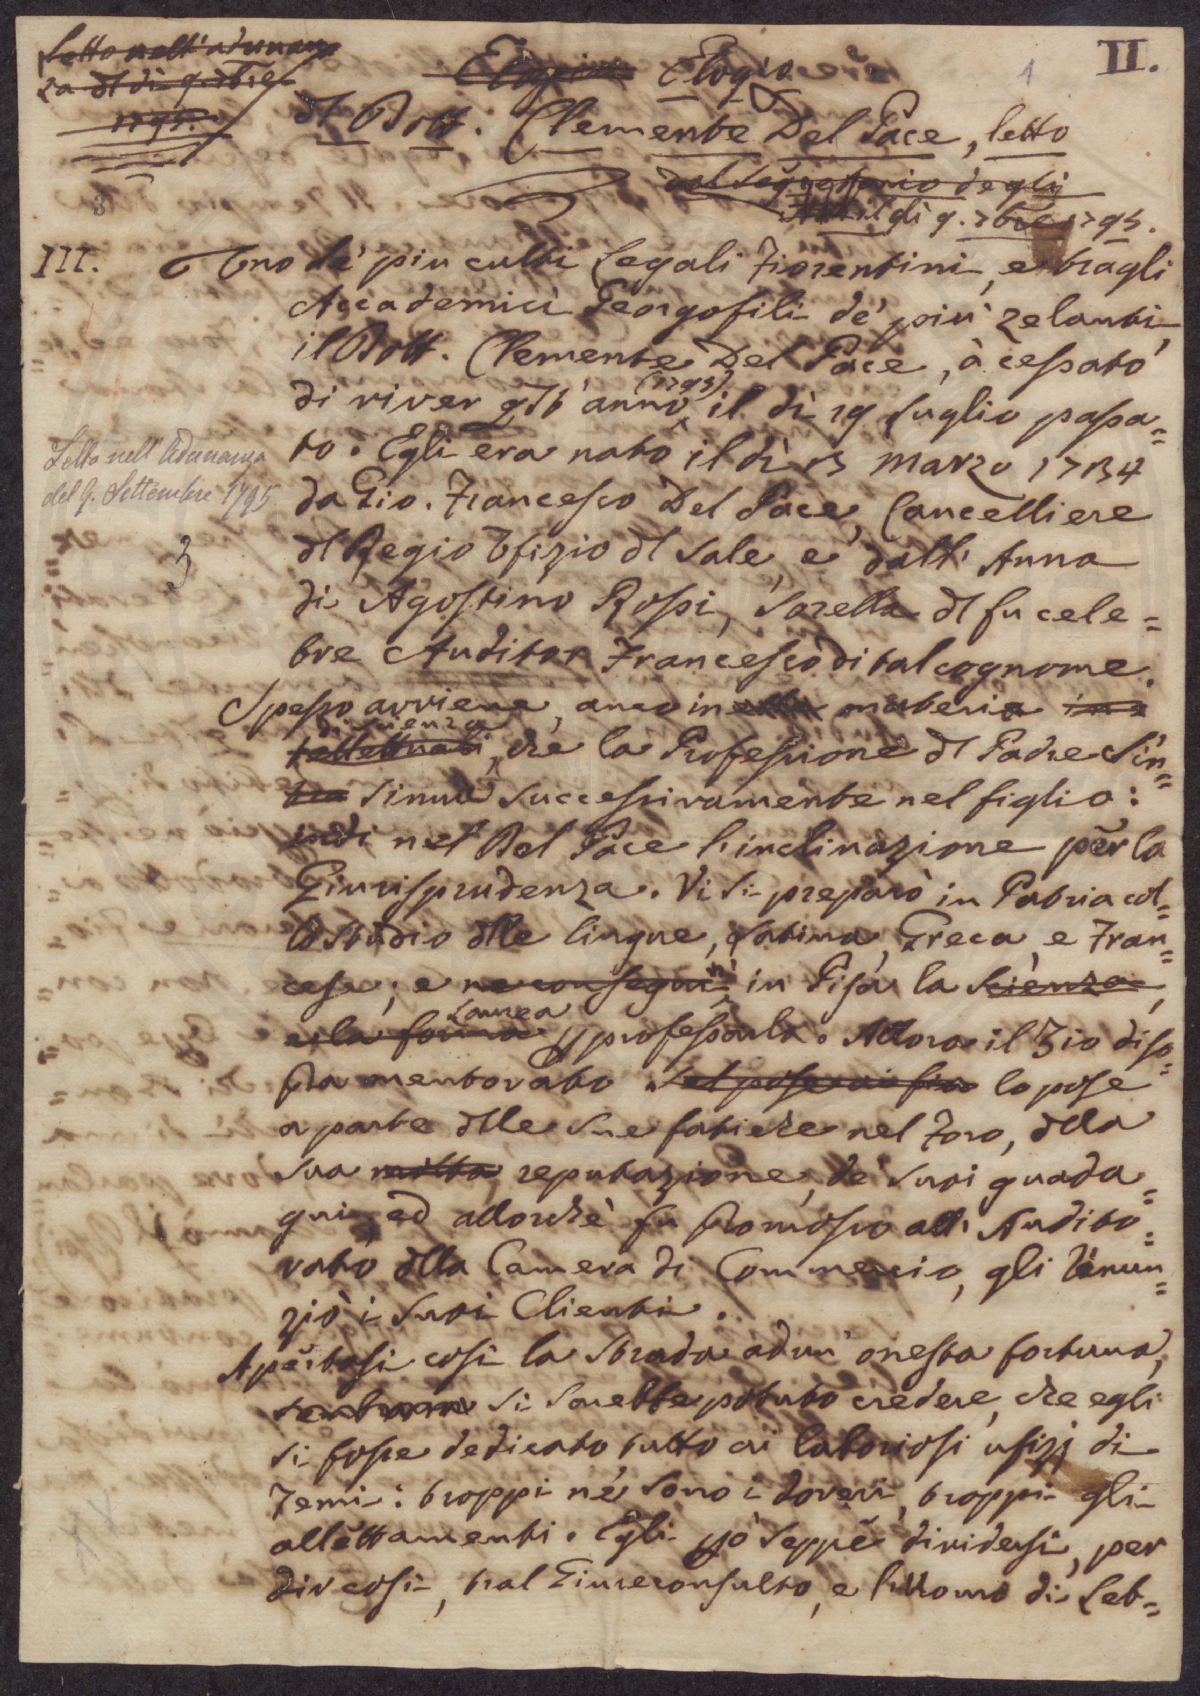 Letto nell'adunan
za dl dì 9. 7bre
1795.
Elogio Elogio
1
II.
dl Dott. Clemente Del Pace, letto
dal Segretario degli
Atti il dì 9. 7bre 1795.
III.
Uno de' piu culti Legali Fiorentini, e tra gli
Accademici Georgofili de' più zelanti,
il Dott. Clemente Del Pace, à cessato
di viver qst' anno (1795) il dì 19 Luglio passa=
to. Egli era nato il dì 13 Marzo 1734
Letto nell'Adunanza
del 9. Settembre 1795
3
da Gio. Francesco Del Pace, Cancelliere
dl Regio Ufizio dl Sale, e dall' Anna
di Agostino Rossi, Sorella dl fu cele=
bre Auditor Francesco di tal cognome.
Spesso avviene, anco in materia
di scienza, che la Professione dl Padre s'in=
sinue successivamente nel figlio:
indi nel Del Pace l'inclinazione per la
Giurisprudenza. Vi si preparò in Patria col=
lo studio dlle lingue, Latina, Greca, e Fran=
cese; e ne conseguì in Pisa la Scienza,
e la forma Laurea p professarla. Allora il Zio diso=
pra mentovato lo pose
a parte dlle sue fatiche nel Foro, dlla
sua molta reputazione, de' suoi guada=
gni, ed allorchè fu promosso all' Audito=
rato dlla Camera di Commercio, gli rinun=
ziò i suoi Clienti.
Apertasi così la strada ad un' onesta fortuna,
si sarebbe potuto credere, che egli
si fosse dedicato tutto ai laboriosi ufizj di
Temi: troppi ne sono i doveri, troppi gli
allettamenti. Egli pò seppe dividersi, per
dir così, tral Giureconsulto, e l'Uomo di Let=